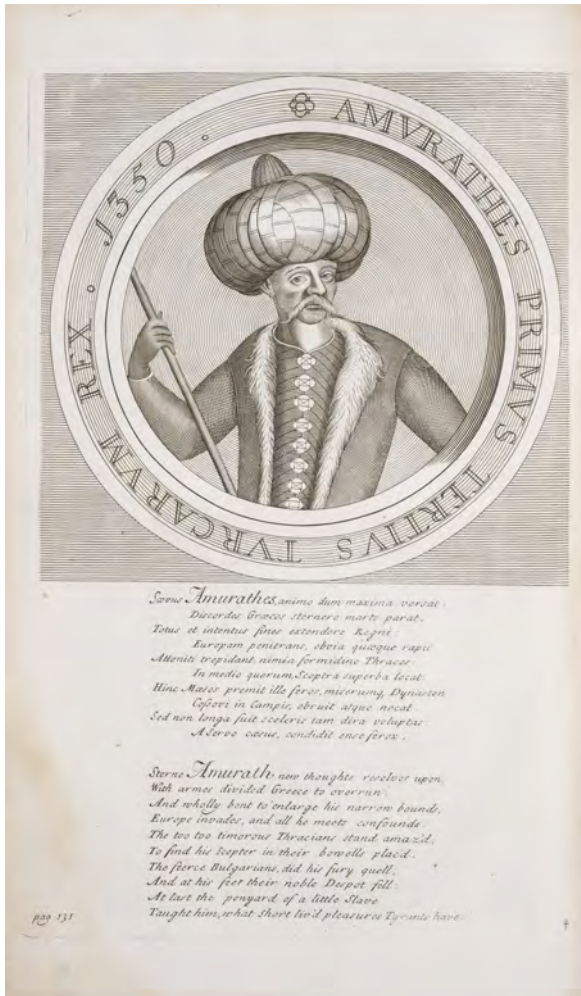 AMVRATHES PRIMVS TERTIVS TVRCARVM REX. 1350.
Sævus Amurathes, animo dum maxima versat
Discordes Græcos sternere marte parat.
Totus et intentus fines extendere Regni
Europam penitrans, obvia quæque rapit
Attoniti trepidant, nimia formidine Thraces
In medio quorum Sceptra superba locat
Hinc Mæsos premit ille feros, miserumq, Dynasten
Cossovi in Campis, obruit atque necat
Sed non longa fuit sceleris tam dira voluptas
A Servo cæsus, condidit ense ferox.
Sterne Amurath new thoughts resolves upon,
With armes divided Greece to overrun
And wholly bent to enlarge his narrow bounds,
Europe invades, and all he meets confounds
The too too timorous Thracians stand amaz'd,
To find his Scepter in their bowells plac'd.
The feerce Bulgarians, did his fury quell,
And at his feet their noble Despot fell:
At last the ponyard of a little Slave
Taught him, what short liv'd pleasures Tyrants have.
pag 131
4